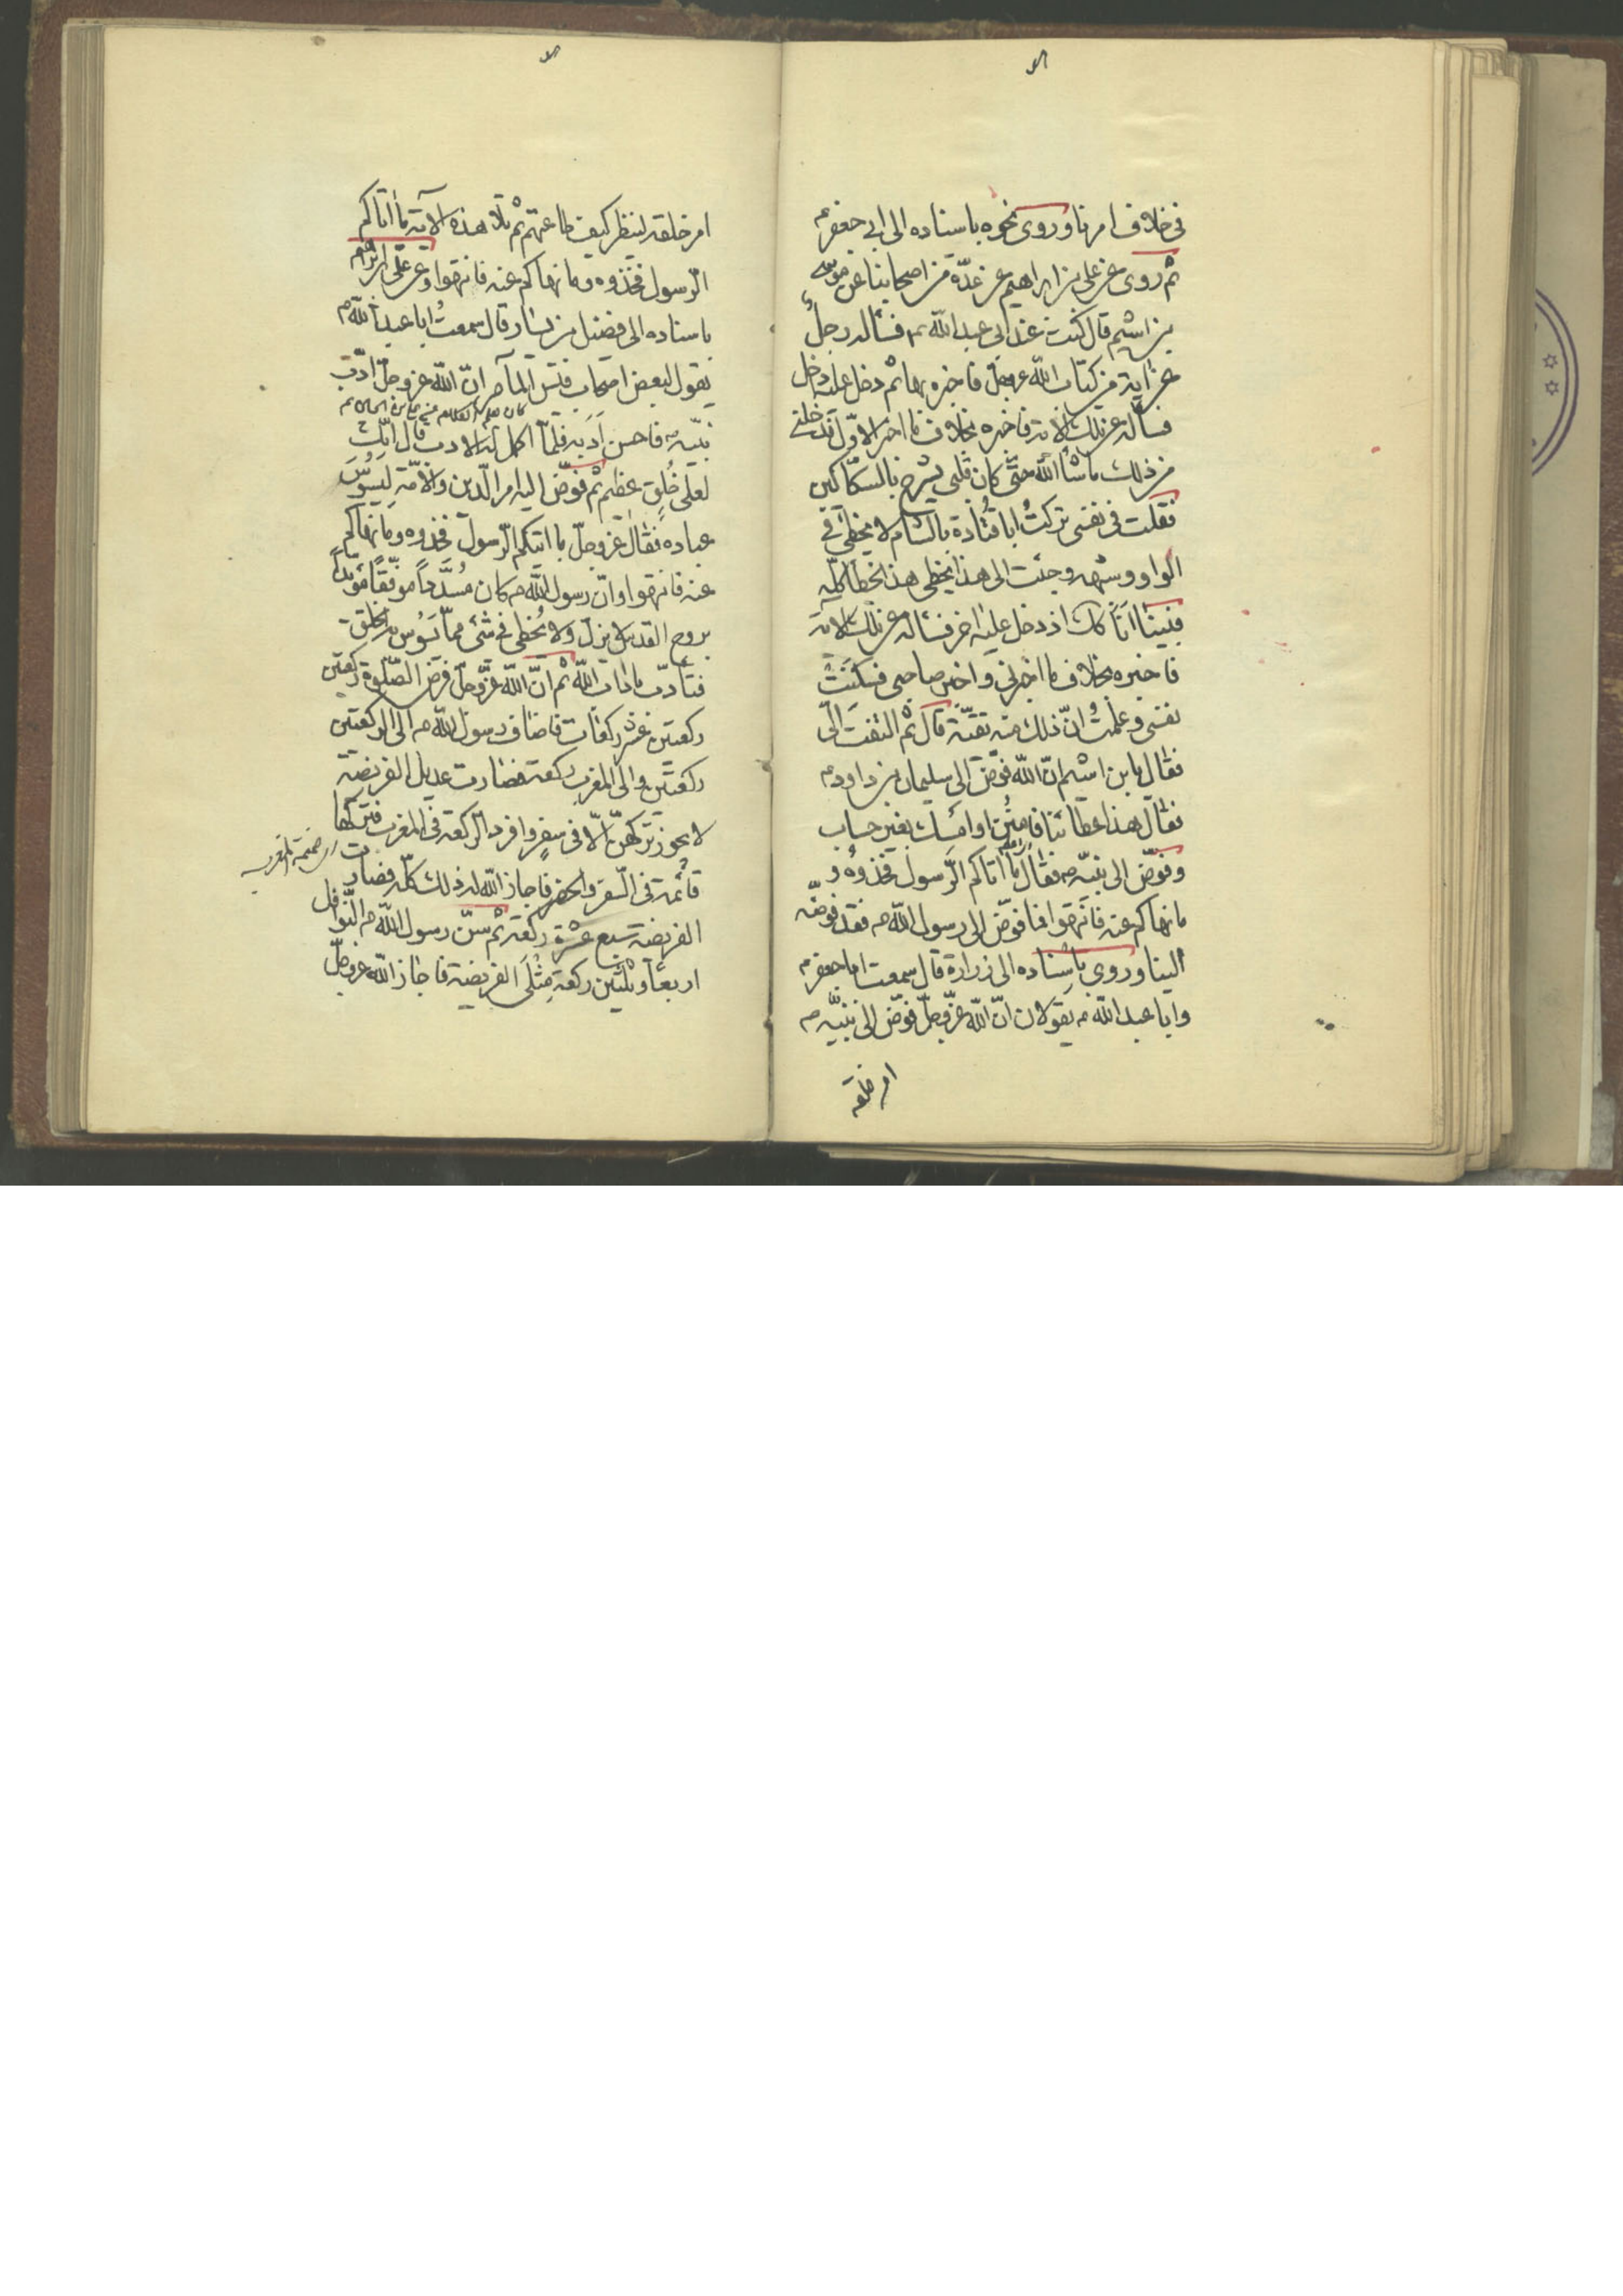 في خلاف امرنا وروى نحوه باسناده الى ابي جعفر ع
ثم روى عن علي بن ابراهيم عن عدّة من اصحابنا عن موسى
بن اشيم قال كنت عند ابي عبد الله ع فسأله رجلٌ
عن اية من كتاب الله عزوجل فاخبره بها ثم دخل عليه داخل
فسأله عن تلك الاية فاخبره بخلاف ما اخبر الاوّل فدخلني
من ذلك ما شاء الله حتّى كان قلبي يشرح بالسكاكين
فقلت في نفسي تركتُ ابا قتادة بالشام لا يخطئ في
الواو وشبهه وجئت الى هذا يخطى هذا الخطا كلّه
فبينا انا كك اذ دخل عليه اخر فسئاله عن تلك الاية
فاخبره بخلاف ما اخبرني واخبر صاحبي فسكنَتْ
نفسي وعلمتُ انّ ذلك منه تقيّة قال ثم التفت الىّ
فقال يا بن اشيم انّ الله فوّض الى سليمان بن داود ع
فقال هذا عطائنا فامنُن او امسك بغير حساب
وفوّض الى نبيّه ص فقال ما اتاكم الرّسول فخذوه و
ما نهاكم عنه فانتهوا فما فوّض الى رسول الله ص فقد فوّضه
الينا وروى باسناده الى زرارة قال سمعت ابا جعفر ع
وابا عبد الله ع يقولان انّ الله عزّوجلّ فوّض الى نبيّه ص
امر خلقه
امر خلقه لينظر كيف طاعتهم ثم تلا هذه الاية ما اتاكم
الرّسول فخذوه وما نهاكم عنه فانتهوا وعن علي بن ابراهيم
باسناده الى فضيل بن يسار قال سمعتُ ابا عبد الله ع
يقول لبعض اصحاب قيس الماصر انّ الله عزوجل ادّب
نبيّه ص فاحسن ادَبه فلمّا اكمل له الادب قال انّك
لعلى خُلق عظيم ثم فوّض اليه امر الدّين والامّة ليسُوسَ
عباده فقال عزوجلّ ما اتيكم الرّسول فخذوه وما نهاكم
عنه فانتهوا وانّ رسول الله ص كان مُسدّداً موفّقاً مؤيّداً
بروح القدس لا يزلّ ولا يُخطى في شئ ممّا يَسُوس به الخلق
فتأدّب باداب الله ثم انّ الله عزّوجلّ فرض الصّلوة ركعتين
ركعتين عشر ركعات فاضاف رسول الله ص الى الركعتين
ركعتين والى المغرب ركعة فصارت عديل الفريضة
لا يجوز تركهنّ الّا في سفرٍ وافرد الرّكعة في المغرب فتركها
قائمة في السّفر والحضر فاجاز الله له ذلك كلّه فصارت
الفريضة سبع عشرة ركعة ثم سنّ رسول الله ص النّوافل
اربعاً وثلثين ركعة مِثْلَى الفريضة فاجاز الله عزوجلّ